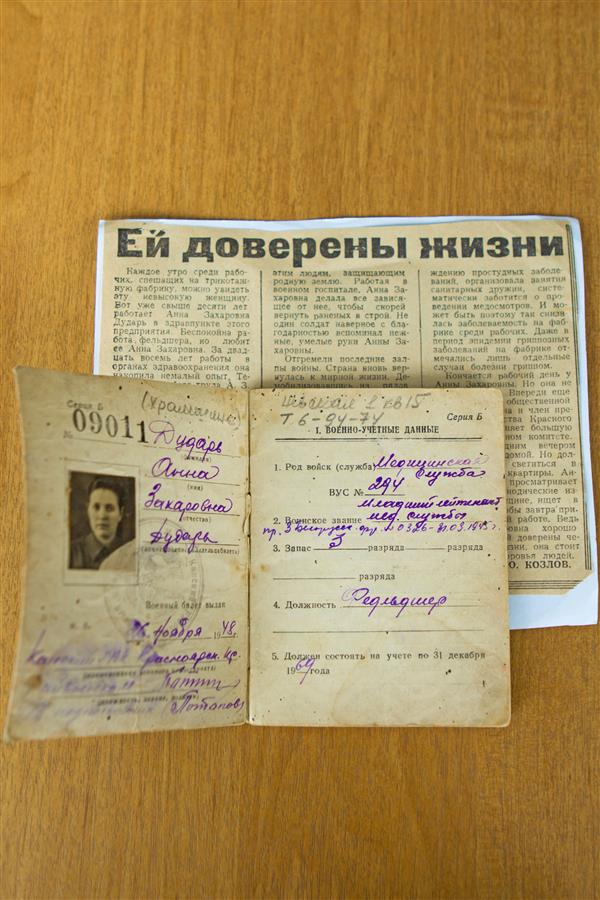 Ей доверены жизни
Каждое утро среди рабо-
чих, спешащих на трикотаж-
ную фабрику, можно увидеть
эту невысокую женщину.
Вот уже свыше десяти лет
работает Анна Захаровна
Дударь в здравпункте этого
предприятия. Беспокойна ра-
бота фельдшера, но любит
ее Анна Захаровна. За двад-
цать восемь лет работы в
органах здравоохранения она
накопила немалый опыт.
этим людям, защищающим
родную землю. Работая в
военном госпитале, Анна За-
харовна делала все завися-
щее от нее, чтобы скорей
вернуть раненых в строй. Не
один солдат наверное с бла-
годарностью вспоминал неж-
ные, умелые руки Анны За-
харовны.
Отгремели последние зал-
пы войны. Страна вновь вер-
нулась к мирной жизни. Де-
мобилизовавшись из рядов
ждению простудных заболе-
ваний, организовала занятия
санитарных дружин, систе-
матически заботится о про-
ведении медосмотров. И мо-
жет быть поэтому так снизи-
лась заболеваемость на фаб-
рике среди рабочих. Даже в
период эпидемии гриппозных
заболеваний на фабрике от-
мечались лишь отдельные
случаи болезни гриппом.
Кончается рабочий день у
Анны Захаровны. Но она не
Впереди еще
общественной
и член пре-
Красного
большую
комитете.
вечером
домой. Но дол-
светиться в
квартиры. Ан-
просматривает
из-
ищет в
завтра при-
работе. Ведь
хорошо
доверены че-
она стоит
людей.
Ю. КОЗЛОВ.
Серия Б
№ 09011
Дударь
Анна
(имя)
Захаровна
(отчество)
Дударь
Военный билет выдан
26 ноября 1948 г.
Т 6-94-74
Серия Б
I. ВОЕННО-УЧЕТНЫЕ ДАННЫЕ
1. Род войск (служба) Медицинская
служба
ВУС № 294
Младший лейтенант
2. Воинское звание мед. службы
3. Запас 3 разряда разряда
разряда
4. Должность Фельдшер
5. Должен состоять на учете по 31 декабря
1969 года